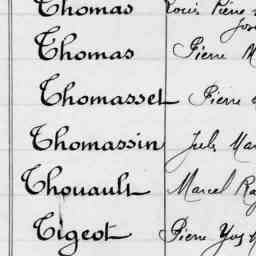 Thomas Louis Pierre
Thomas Pierre M
Thomasset Pierre
Thomassin Jules Mar
Thouault Marcel Ray
Tigeot Pierre Yves M